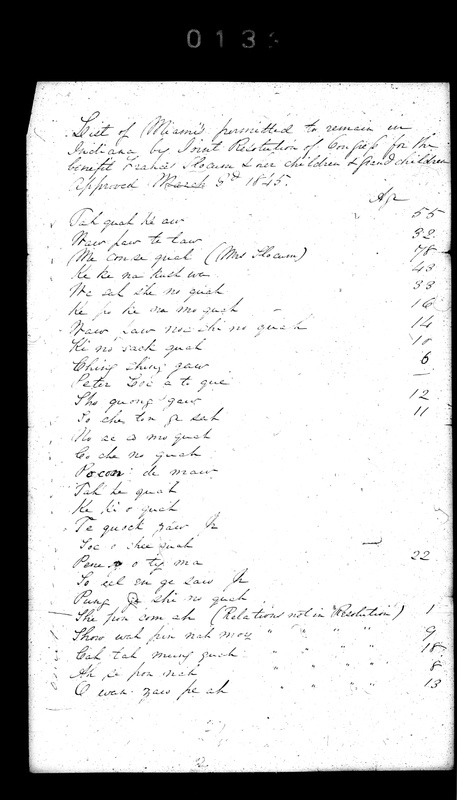 0133
List of Miamis permitted to remain in
Indiana by Joint Resolution of Congress for the
benefit Frances Slocum & her children & Grand children
approved March 3d 1845.
Age
Tah quah ke aw 55
Waw paw te taw 32
Ma con se quah (Mrs Slocum) 78
Ke ke na kush wa 43
We sah she no quah 33
Ke po ke na mo quah 16
Waw saw noc shi no quah 14
Ki no sack quah 10
Ching shing gaw 6
Peter a ti que
Sho quong gaw 12
So che ton ge sah 11
No ac co mo quah
Co che no quah
Pocon de maw
Tah ke quah
Ke ki o quah
Te quock yaw Jr
Soc o chee quah
Pene o ty ma 22
So eel en ge saw Jr
Pung ge shi no quah
She pon com ah (Relations not in Resolution) 1
Show wah pin nah mou " " " " 9
Cah tah mung quah " " " " 18
Ah se pon nah " " " 8
O wah yaw pe ah " " " 13